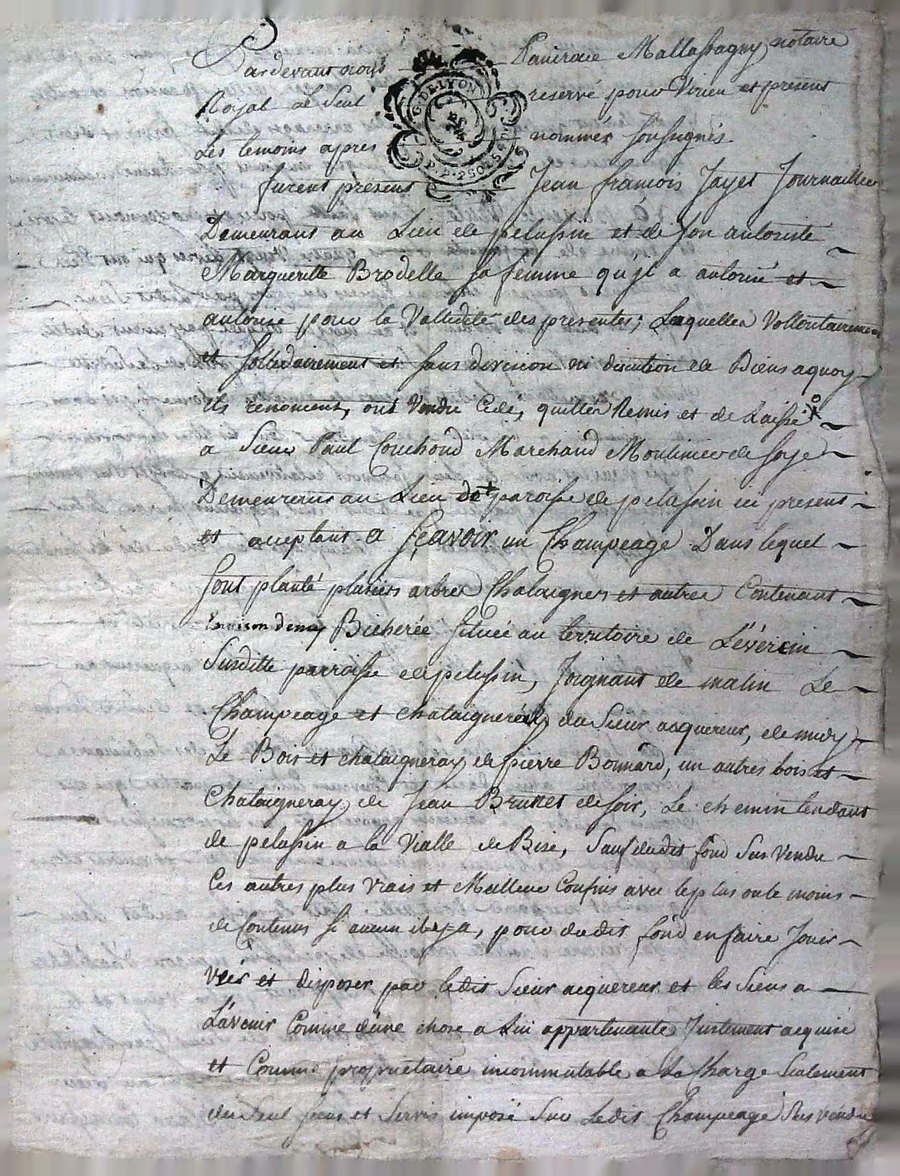 Pardevant nous Mallassagny notaire
Royal de Seul reservé pour Virieu et present
Les temoins apres nommés soussignés.
G. DE LYON
furent présent Jean francois Jayet Journaillier
Demeurant au Lieu de pelussin et de son autorite
Margueritte Brodelle sa femme qu'jl a autorisé et
autorise pour la Validité des presentes; Laquelles Vollontairement
et sollidairement et sans division ni discution de Biens aquoy
ils renoncent, ont Vendu Cedé, quitter Remis et de Laissé
a Sieur Paul Couchoud Marchand Moulinier de soye
Demeurant au Lieu et paroisse de pelussin ici present
et aceptant a sçavoir un Champeage Dans lequel
sont planté plusieurs arbres Chataigners et autres Contenant
Environ demy Bicherée située au territoire de
Susditte parroisse de pelussin, Joignant de matin Le
Champeage et chataigneray du Sieur acquereur, de midy
Le Bois et chataigneray de pierre Bonnard, un autres bois et
Chataigneray de Jean Brunet de soir, Le chemin tendant
de pelussin a la Vialle de Bise, Sauf dudit fond sus Vendu
Ces autres plus Vrais et Meilleur Confins avec le plus ou le moins
de Contenus si aucun ibeya, pour dudit fond en faire Jouir
et disposer par ledit Sieur acquereur et les Siens a
L'avenir Comme d'une chose a Lui appartenante Justement acquise
et Comme propriétaire incommutable a La Charge Seulement
du Seul et Servis imposé sur Ledit Champeage Sus vendu